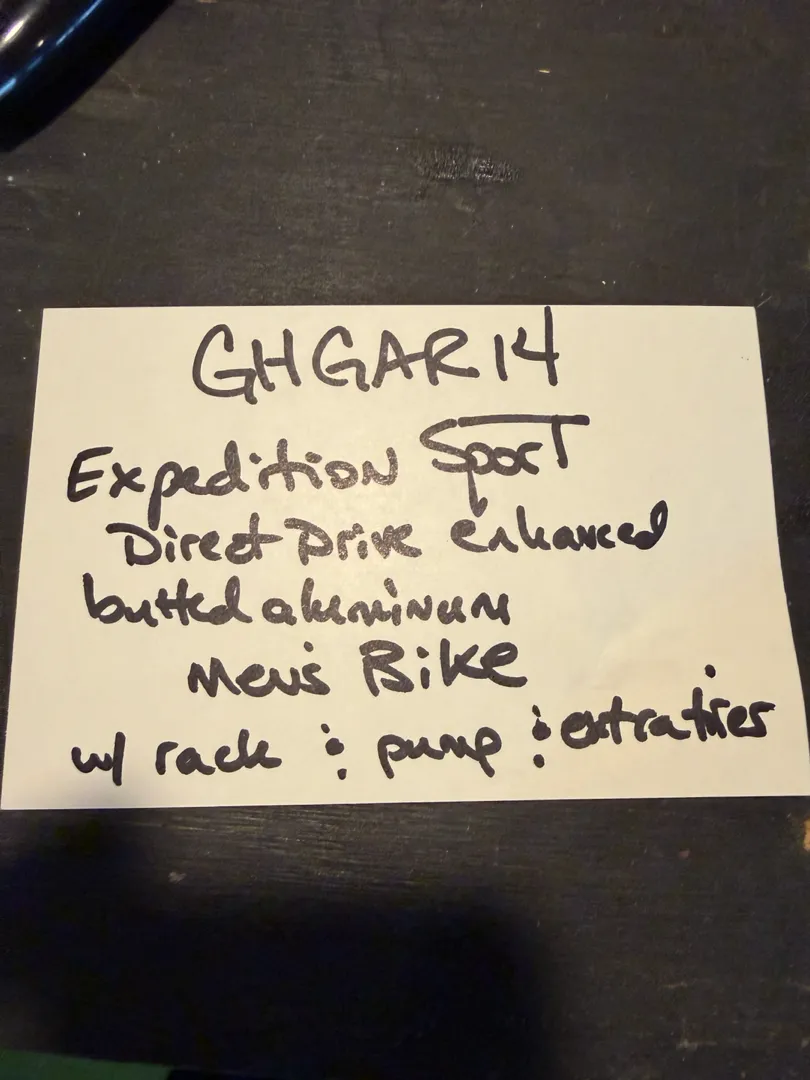 GHGAR14
Expedition Sport
Direct Drive enhanced
butted aluminum
Men's Bike
w/ rack & pump & extra tires